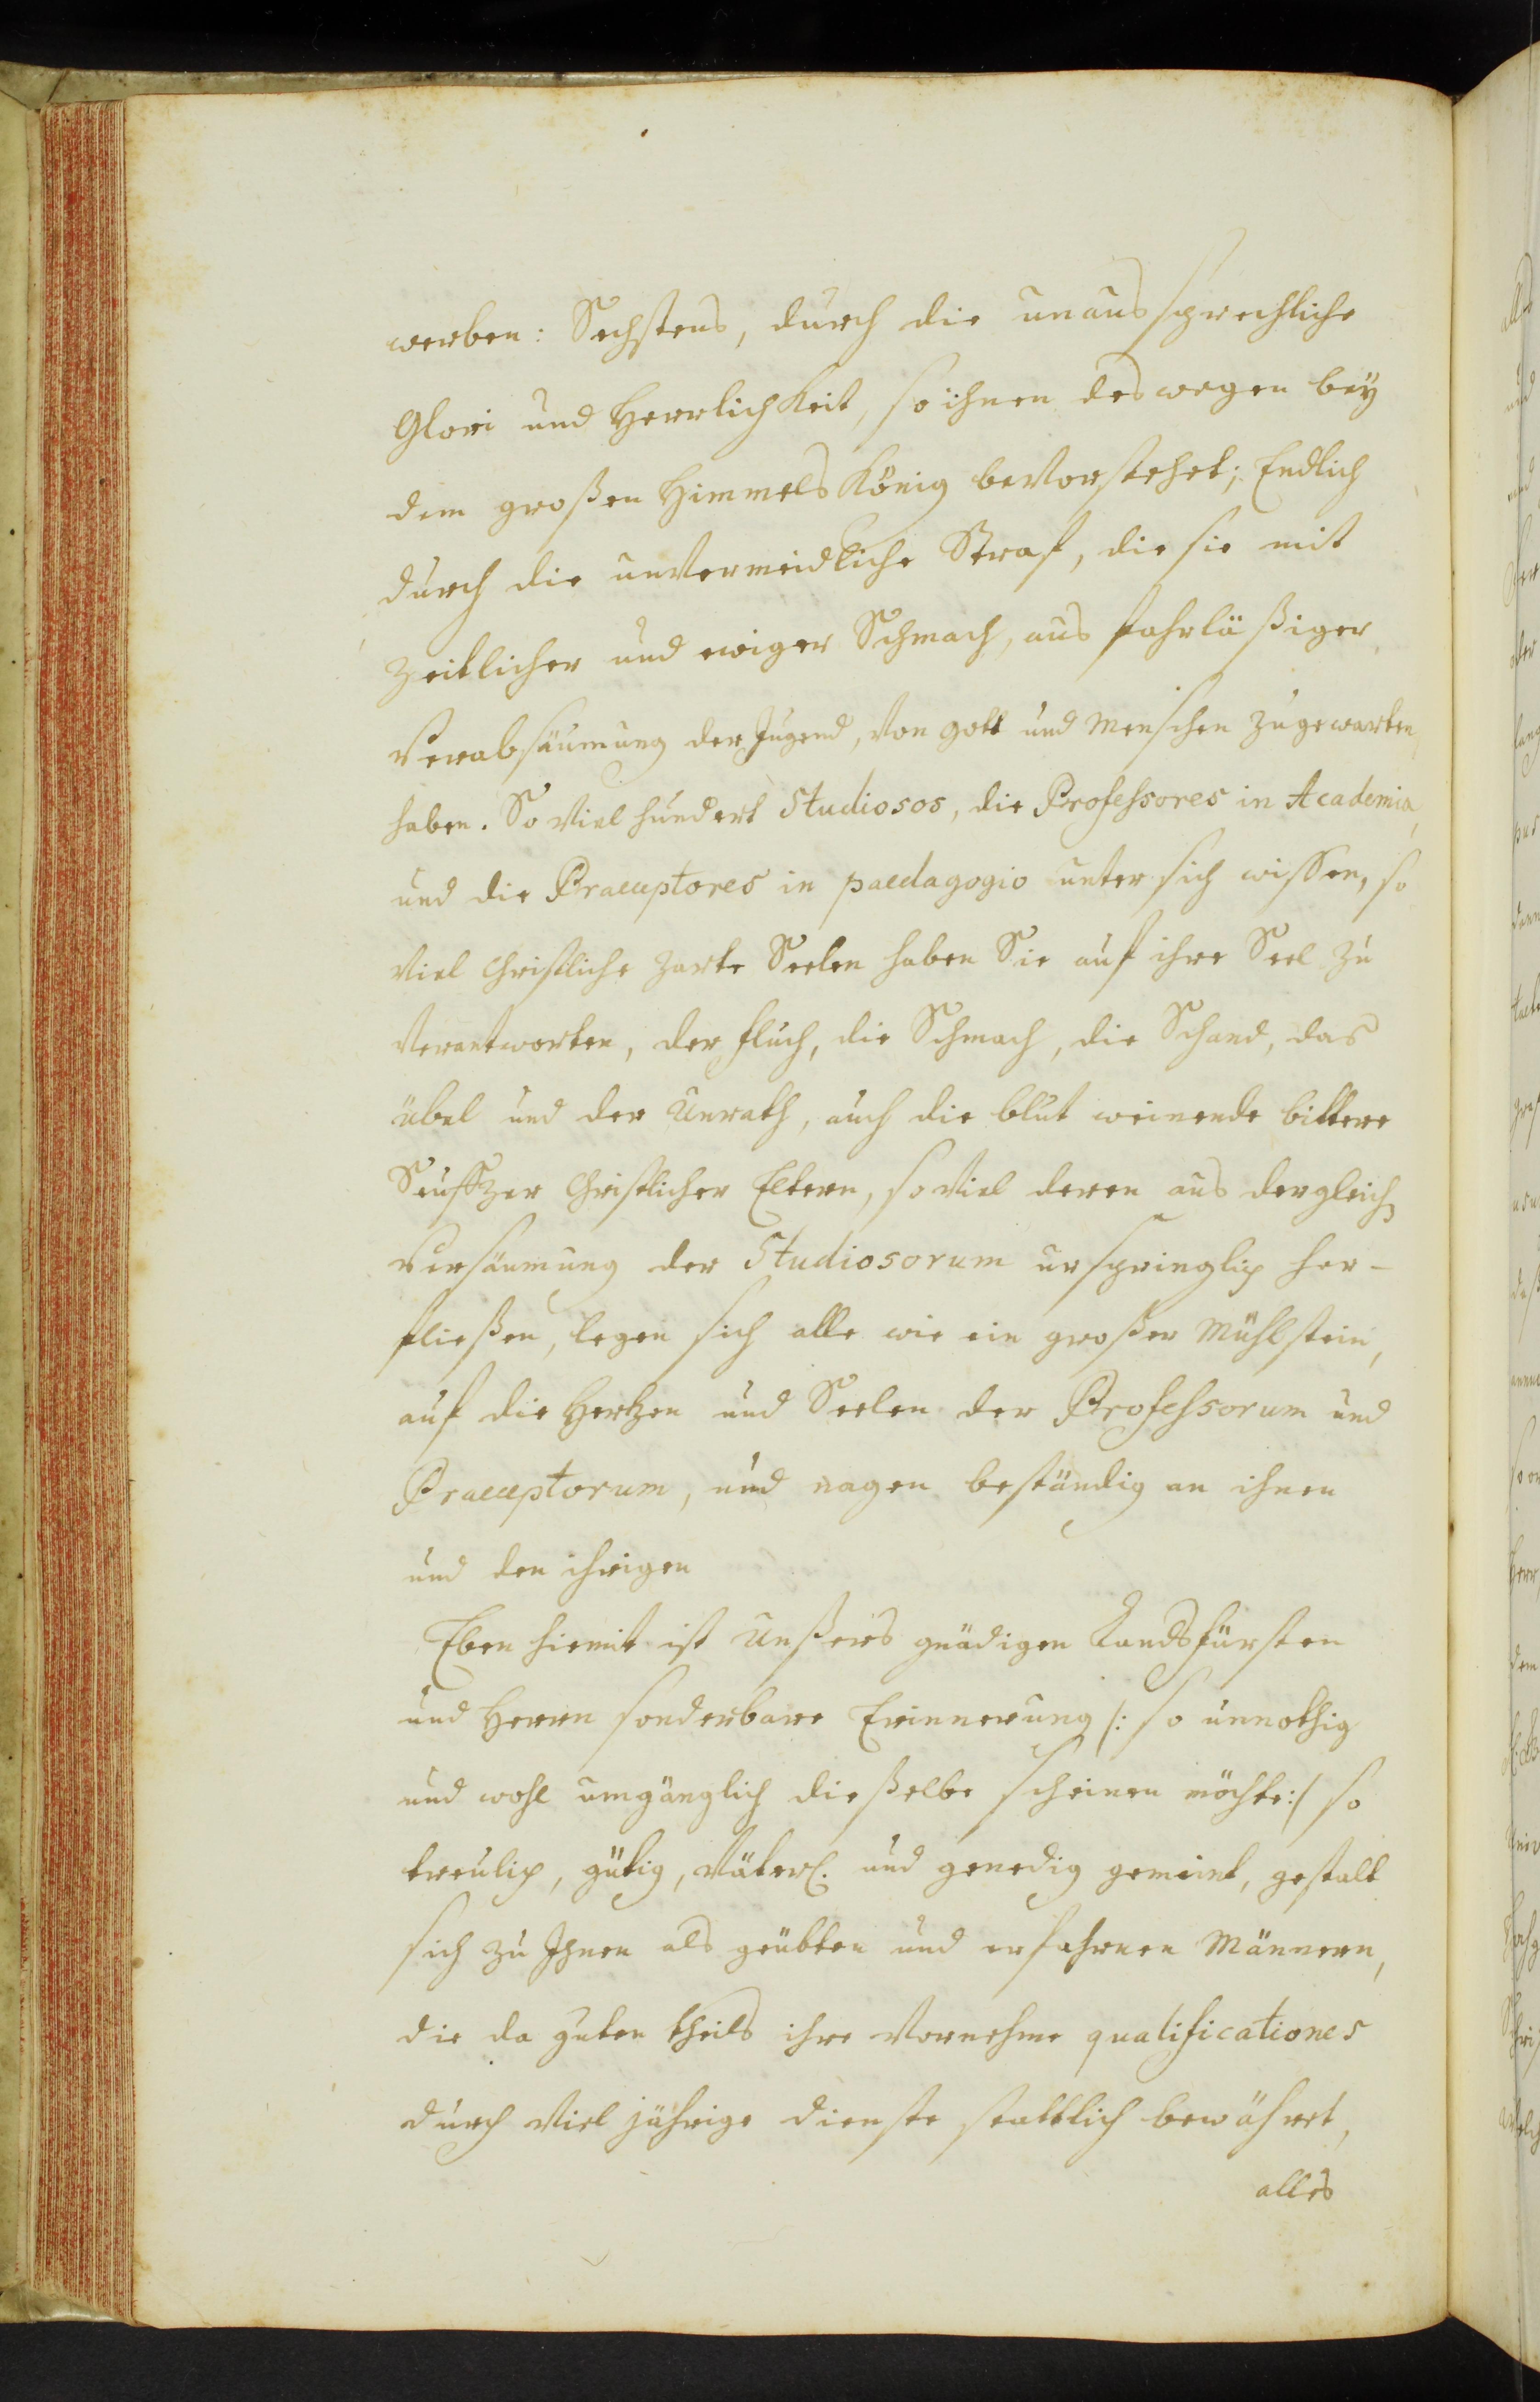 werben: Sechstens, durch die unaussprechliche
Glori und Herrlichkeit, so ihnen deswegen bey
dem großen Himmels König bevorstehet; Endlich
durch die unvermeidliche Straf, die sie mit
zeitlicher und ewiger Schmach, aus fahrläßiger
Verabsäumung der Jugend, von Gott und Menschen zugewarten
haben. So viel hundert Studiosos, die Professores in Academia,
und die Praeceptores in paedagogio unter sich wissen, so
viel Christliche zarte Seelen haben Sie auf ihre Seel zu
verantworten, der Fluch, die Schmach, die Schand, das
übel und der Unrath, auch die blut weinende bittere
Seuffzer Christlicher Eltern, so viel deren aus dergleich
Versäumung der Studiosorum urspringlich her-
fließen, legen sich alle wie ein großer Mühlstein,
auf die Hertzen und Seelen der Professorum und
Praeceptorum, und nagen beständig an ihnen
und den ihrigen
Eben hiemit ist Unßers gnädigen Landsfürsten
und Herrn sonderbare Erinnerung /: so unnothig
und wohl umgänglich dieselbe scheinen möchte :/ so
treulich, gütig, väterl. und genedig gemeint, gestalt
sich zu Ihnen als geübten und erfahrnen Männern,
die da guten theils ihre vornehme qualificationes
durch viel jährige dienste stattlich bewähret,
alles